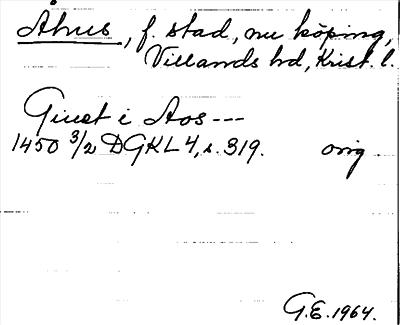 Åhus, f. stad, nu köping,
Villands hd, Krist. l.
Giuet i Aos ---
1450 3/2 DGKL 4, s. 319. orig.
G.E. 1964.